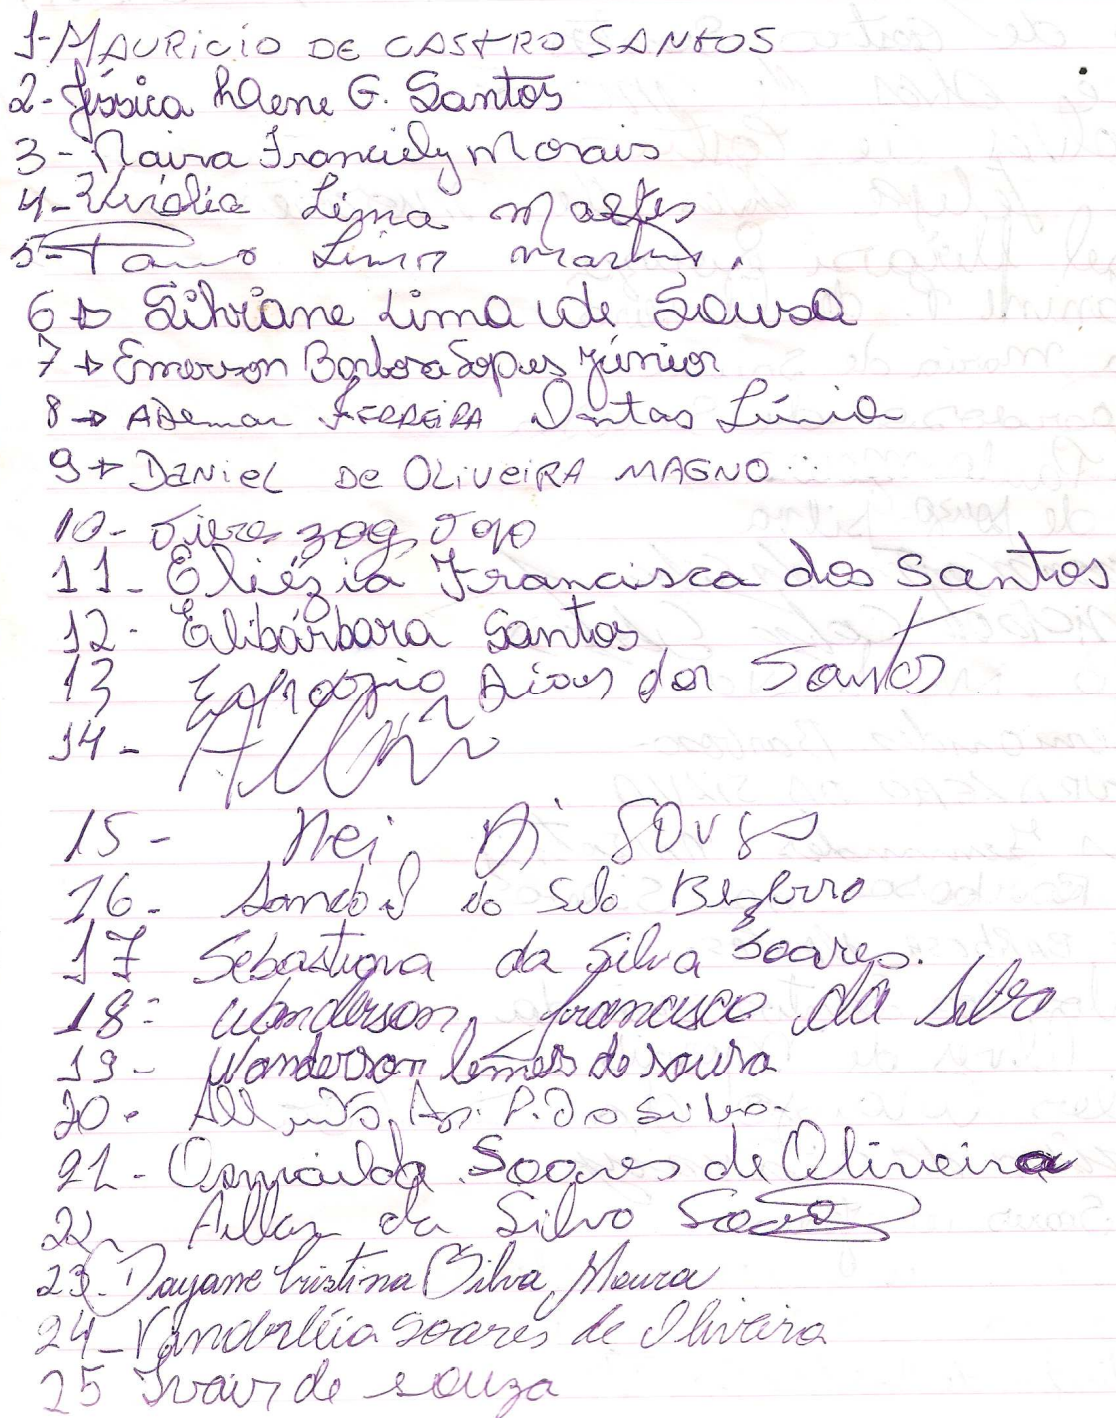 1-MAURICIO DE CASTRO SANTOS
2-Jéssica hlene G. Santos
3-Naira Franciely Morais
4- Lima
5- Lima Martins.
6→ Silviane Lima de Sousa
7→ Emerson Barbosa Lopes Júnior
8→ ADemar FERREIRA Dantas Júnior
9→ DANieL De OLiVeiRA MAGNO
10-
11- Eliézia Francisca dos Santos
12- Elibárbara Santos
13 dos Santos
14-
15- Nei Di SOUSA
16- da Silva Bezerra
17 Sebastiana da Silva Soares.
18- Wanderson francisco da Silva
19- Wanderson lemes de sousa
20- P. da Silva
21- Soares de Oliveira
22- Allan da Silva
23-Dayane Cristina Silva Moura
24-Vanderléia Soares de Oliveira
25 Ivair de souza